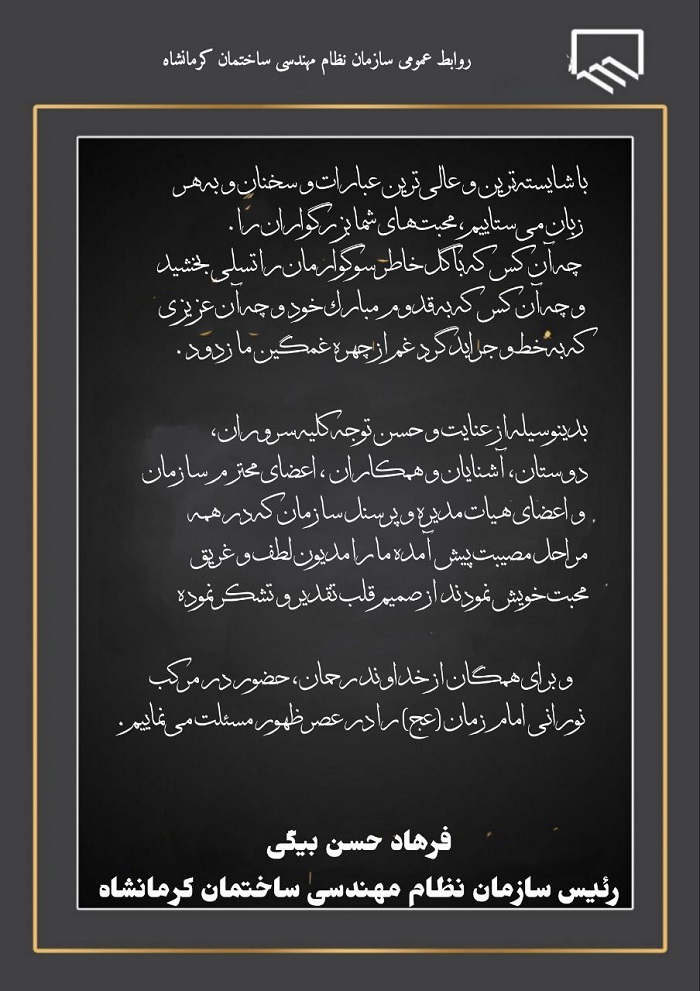 روابط عمومی سازمان نظام مهندسی ساختمان کرمانشاه
با شایسته‌ترین و عالی‌ترین عبارات و سخنان و به هر
زبان می‌ستاییم، محبت‌های شما بزرگواران را.
چه آن کس که با گل خاطر سوگوارمان را تسلی بخشید
و چه آن کس که به قدوم مبارك خود و چه آن عزیزی
که به خط و جراید گرد غم از چهره غمگین ما زدود.
بدینوسیله از عنایت و حسن توجه کلیه سروران،
دوستان، آشنایان و همکاران، اعضای محترم سازمان
و اعضای هیات مدیره و پرسنل سازمان که در همه
مراحل مصیبت پیش آمده ما را مدیون لطف و غریق
محبت خویش نمودند از صمیم قلب تقدیر و تشکر نموده
و برای همگان از خداوند رحمان، حضور در مرکب
نورانی امام زمان (عج) را در عصر ظهور مسئلت می‌نماییم.
فرهاد حسن بیگی
رئیس سازمان نظام مهندسی ساختمان کرمانشاه